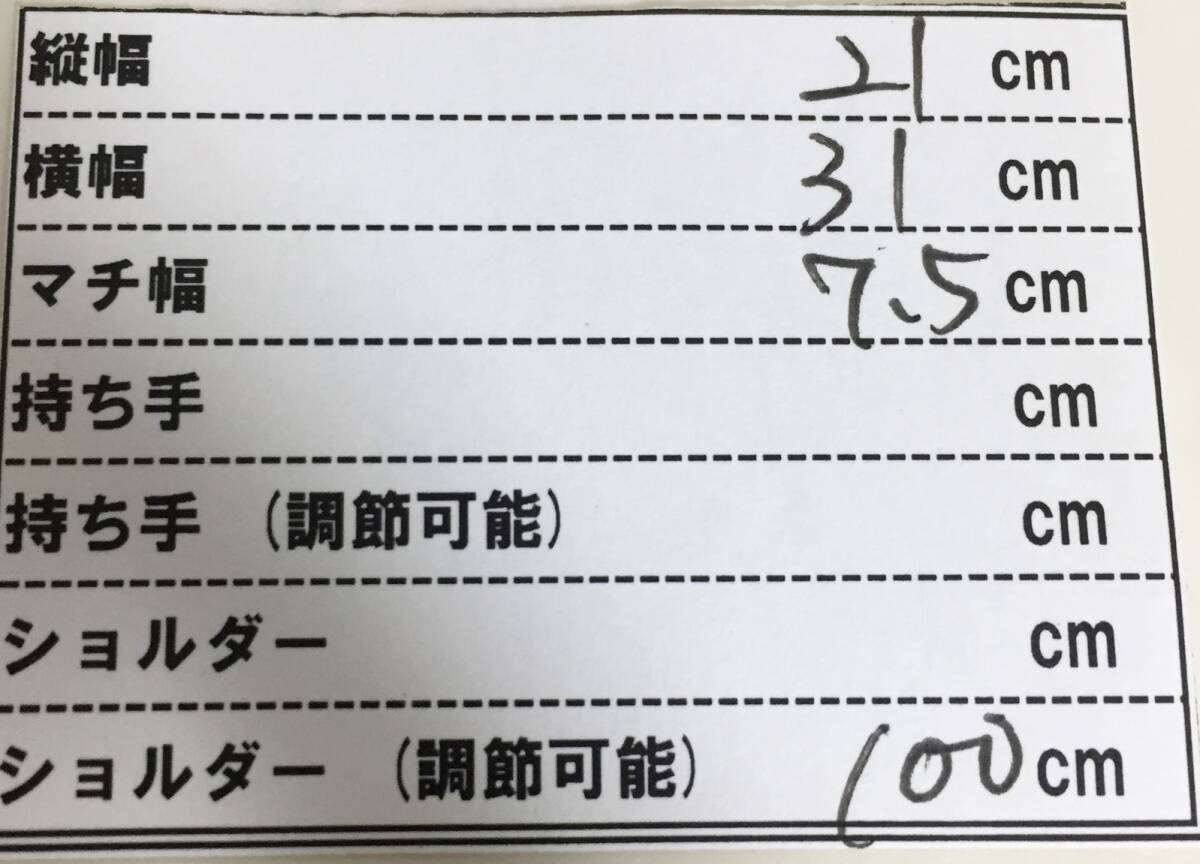 縦幅 21 cm
横幅 31 cm
マチ幅 7.5 cm
持ち手 cm
持ち手 (調節可能) cm
ショルダー cm
ショルダー (調節可能) 100 cm